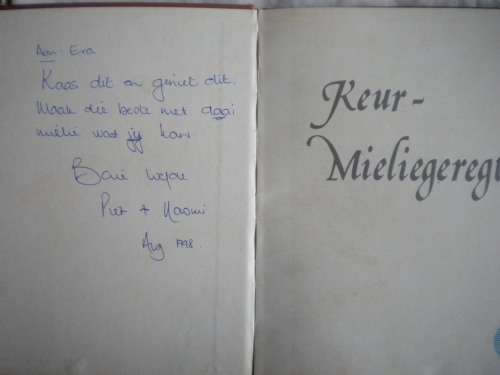 Aan: Era
Kaas dit en geniet dit.
Maak die beste met daai
mielie wat jy kan.
Baie liefde
Piet + Naomi
Aug 1998.
Keur-
Mieliegereg